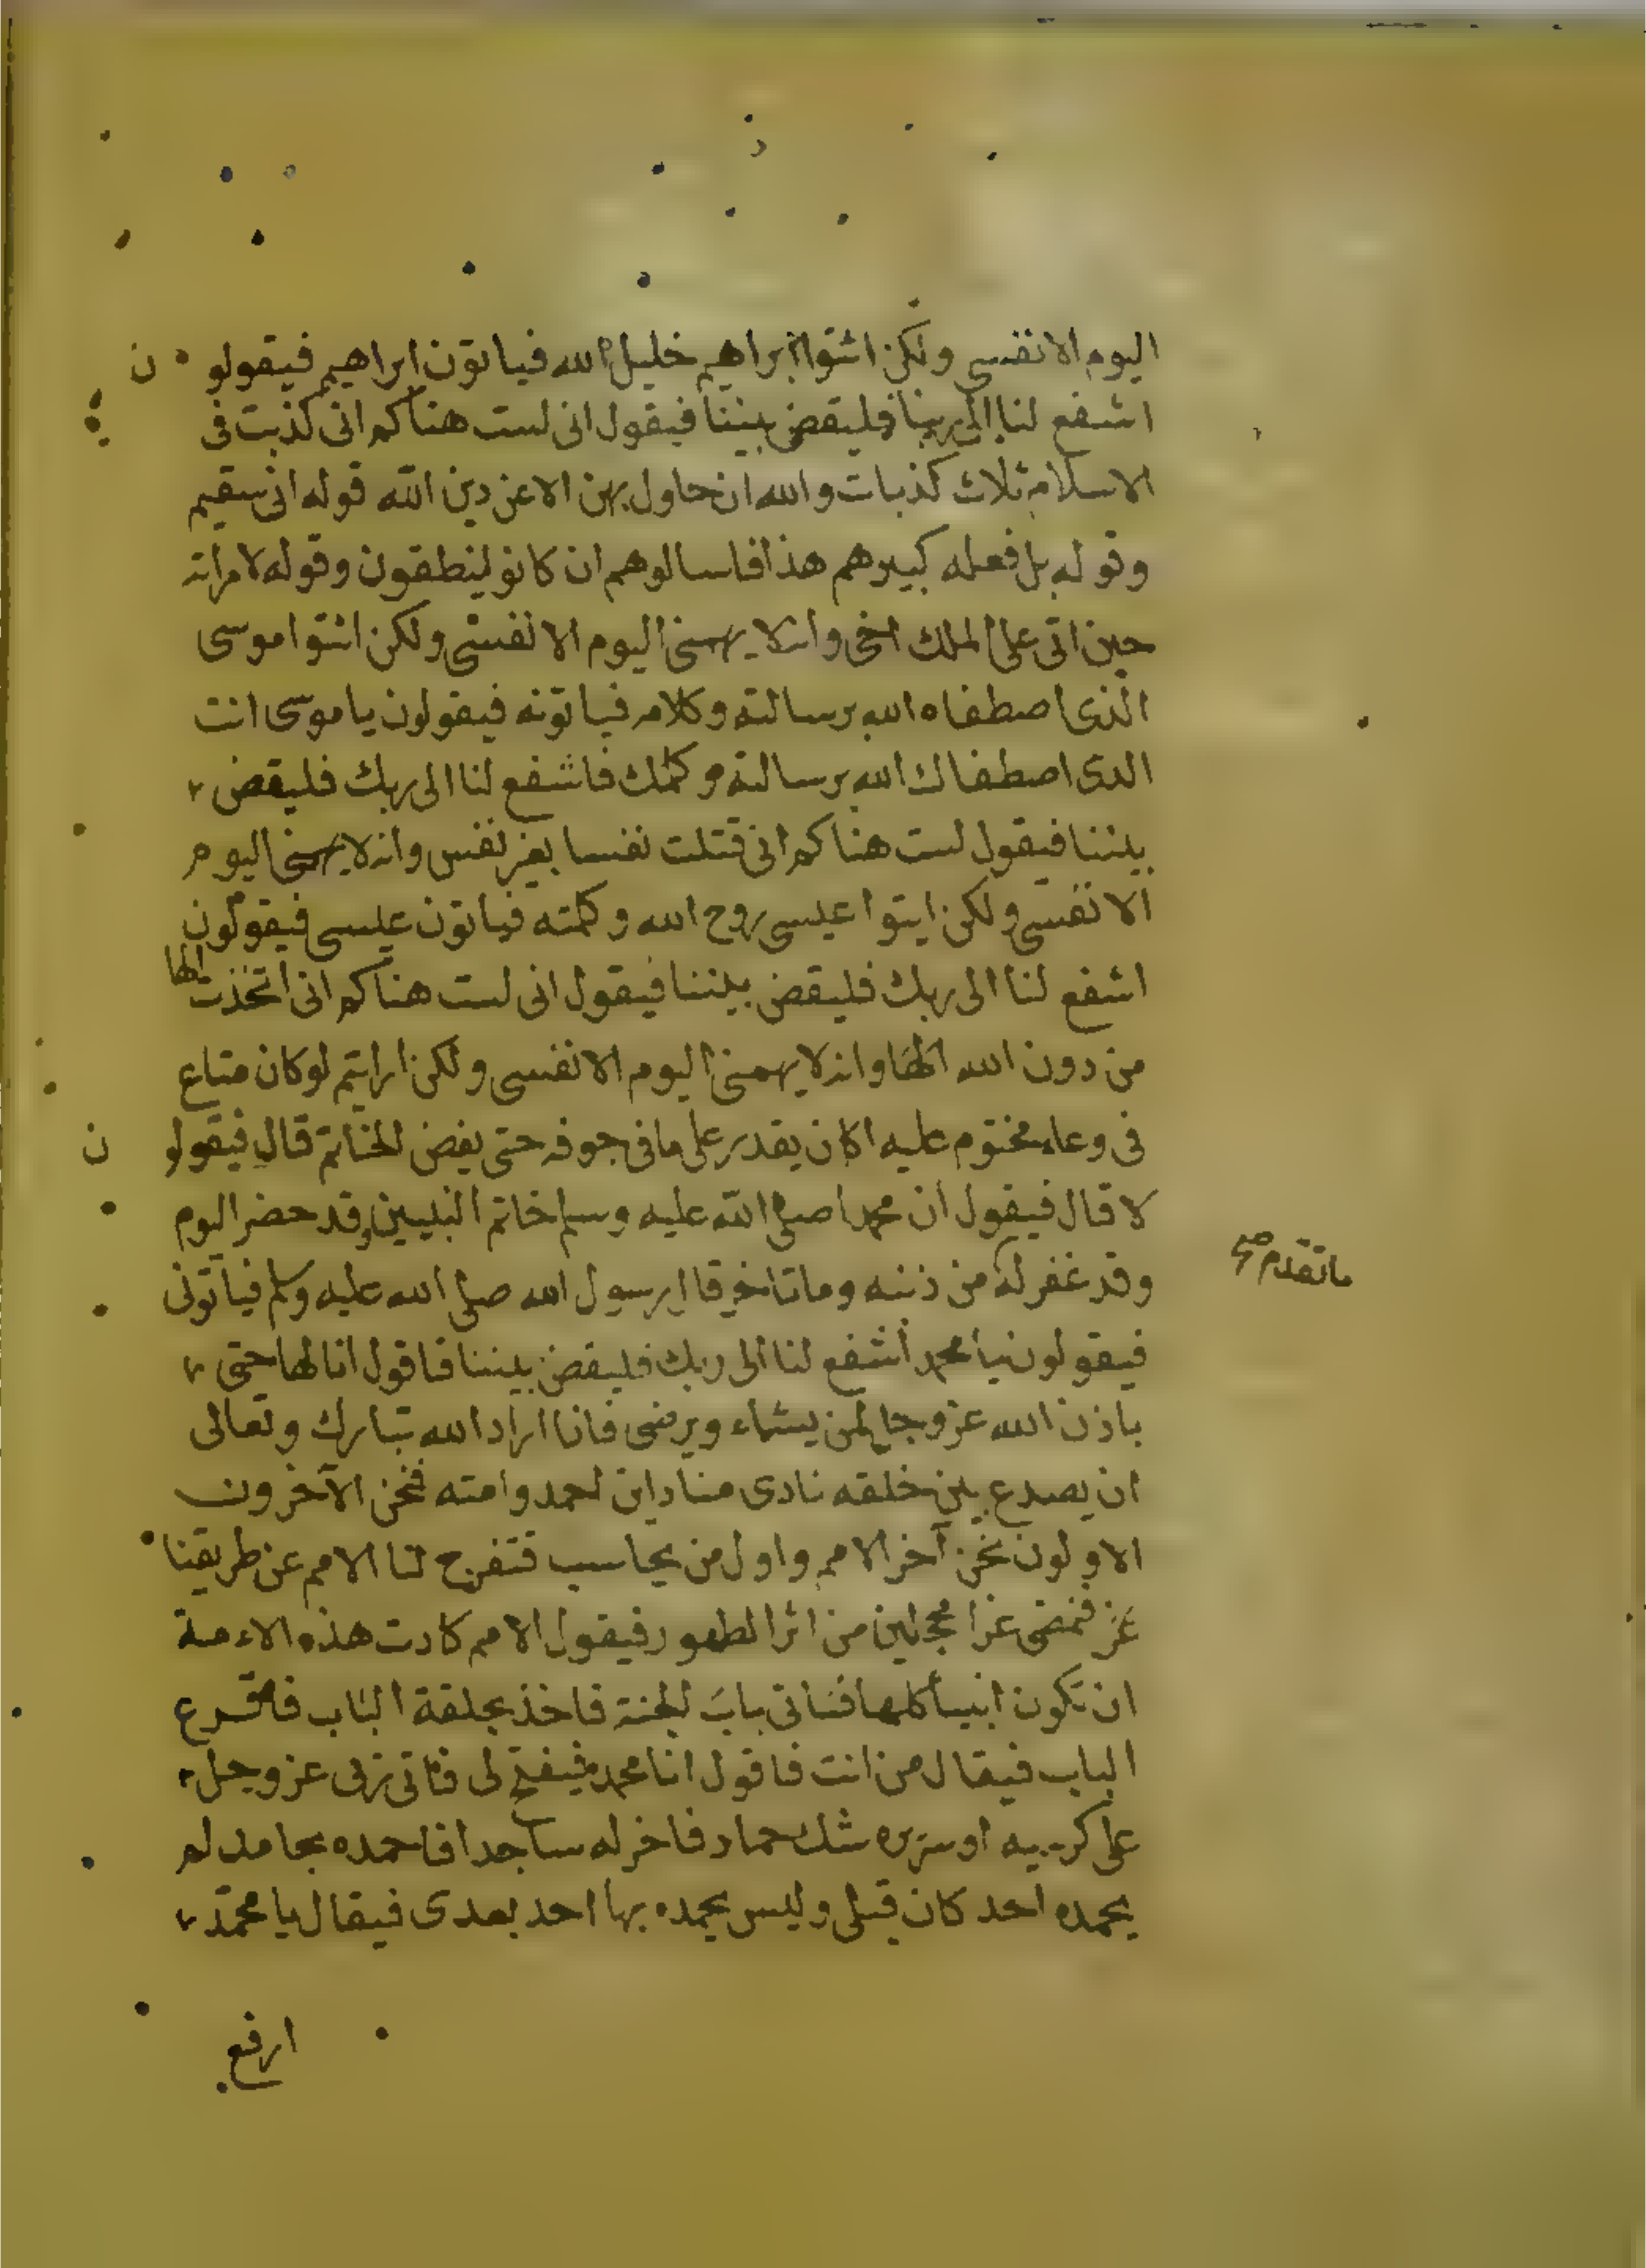 اليوم الا نفسى ولكن ائتوا ابراهيم خليل الله فياتون ابراهيم فيقولو ن
اشفع لنا الى ربنا فليقض بيننا فيقول انى لست هناكم انى كذبت فى
الاسلام ثلاث كذبات والله ان حاول بهن الا عن دين الله قوله انى سقيم
وقوله بل فعله كبيرهم هذا فاسالوهم ان كانو ينطقون وقوله لامراته
حين اتى على الملك اخى وانه لا يهمنى اليوم الا نفسى ولكن ائتوا موسى
الذى اصطفاه الله برسالته وكلامه فياتونه فيقولون يا موسى انت
الذى اصطفاك الله برسالته وكلمك فاشفع لنا الى ربك فليقض
بيننا فيقول لست هناكم انى قتلت نفسا بغير نفس وانه لا يهمنى اليوم
الا نفسى ولكن ايتوا عيسى روح الله وكلمته فياتون عيسى فيقولون
اشفع لنا الى ربك فليقض بيننا فيقول انى لست هناكم انى اتخذت الها
من دون الله الها وانه لا يهمنى اليوم الا نفسى ولكن ارايتم لو كان متاع
فى وعاء مختوم عليه اكان يقدر على ما فى جوفه حتى يفض الخاتم قال فيقولو ن
لا قال فيقول ان محمدا صلى الله عليه وسلم خاتم النبيين وقد حضر اليوم
وقد غفر له من ذنبه وما تاخر قال رسول الله صلى الله عليه وسلم فياتونى
ما تقدم صح
فيقولون يا محمد اشفع لنا الى ربك فليقض بيننا فاقول انا لها حتى
ياذن الله عز وجل لمن يشاء ويرضى فاذا اراد الله تبارك وتعالى
ان يصدع بين خلقه نادى مناد اين احمد وامته فنحن الآخرون
الاولون نحن آخر الامم واول من يحاسب فتفرج لنا الامم عن طريقنا
فنمضى غرا محجلين من اثر الطهور فيقول الامم كادت هذه الامة
ان تكون انبيأ كلها فناتى باب الجنة فاخذ بحلقة الباب فاقرع
الباب فيقال من انت فاقول انا محمد فيفتح لى فاتى ربى عز وجل
على كرسيه او سريره شك حماد فاخر له ساجدا فاحمده بمحامد لم
يحمده احد كان قبلى وليس يحمده بها احد بعدى فيقال يا محمد
ارفع